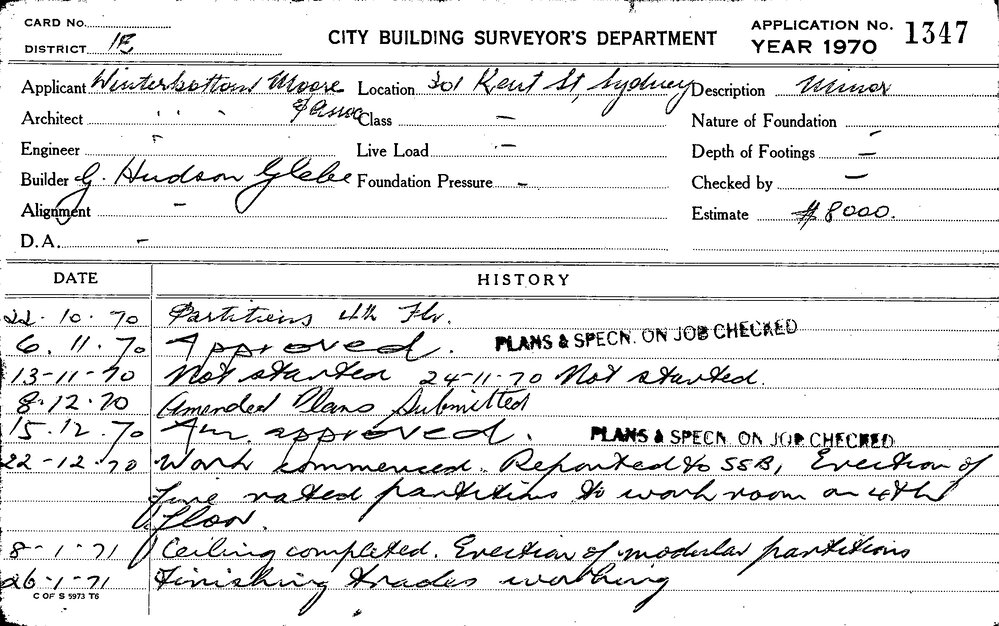 CARD No.
DISTRICT 1E
CITY BUILDING SURVEYOR'S DEPARTMENT
APPLICATION No. 1347
YEAR 1970
Applicant Winterbottom Moore & Assoc Location 301 Kent St, Sydney Description Minor
Architect " " " Class — Nature of Foundation —
Engineer " Live Load — Depth of Footings —
Builder G. Hudson Glebe Foundation Pressure - Checked by —
Alignment - Estimate $8000.
D.A. -
DATE HISTORY
22.10.70 Partitions 4th Flr.
6.11.70 Approved. PLANS & SPECN. ON JOB CHECKED
13-11-70 Not started 24-11-70 Not started.
8.12.70 Amended Plans Submitted
15.12.70 Am. approved. PLANS & SPECN. ON JOB CHECKED
22-12-70 Work commenced. Reported to SSB, Erection of
fire rated partitions to work room on 4th
floor.
8-1-71 Ceiling completed. Erection of modular partitions
26-1-71 Finishing trades working
C OF S 5973 T6